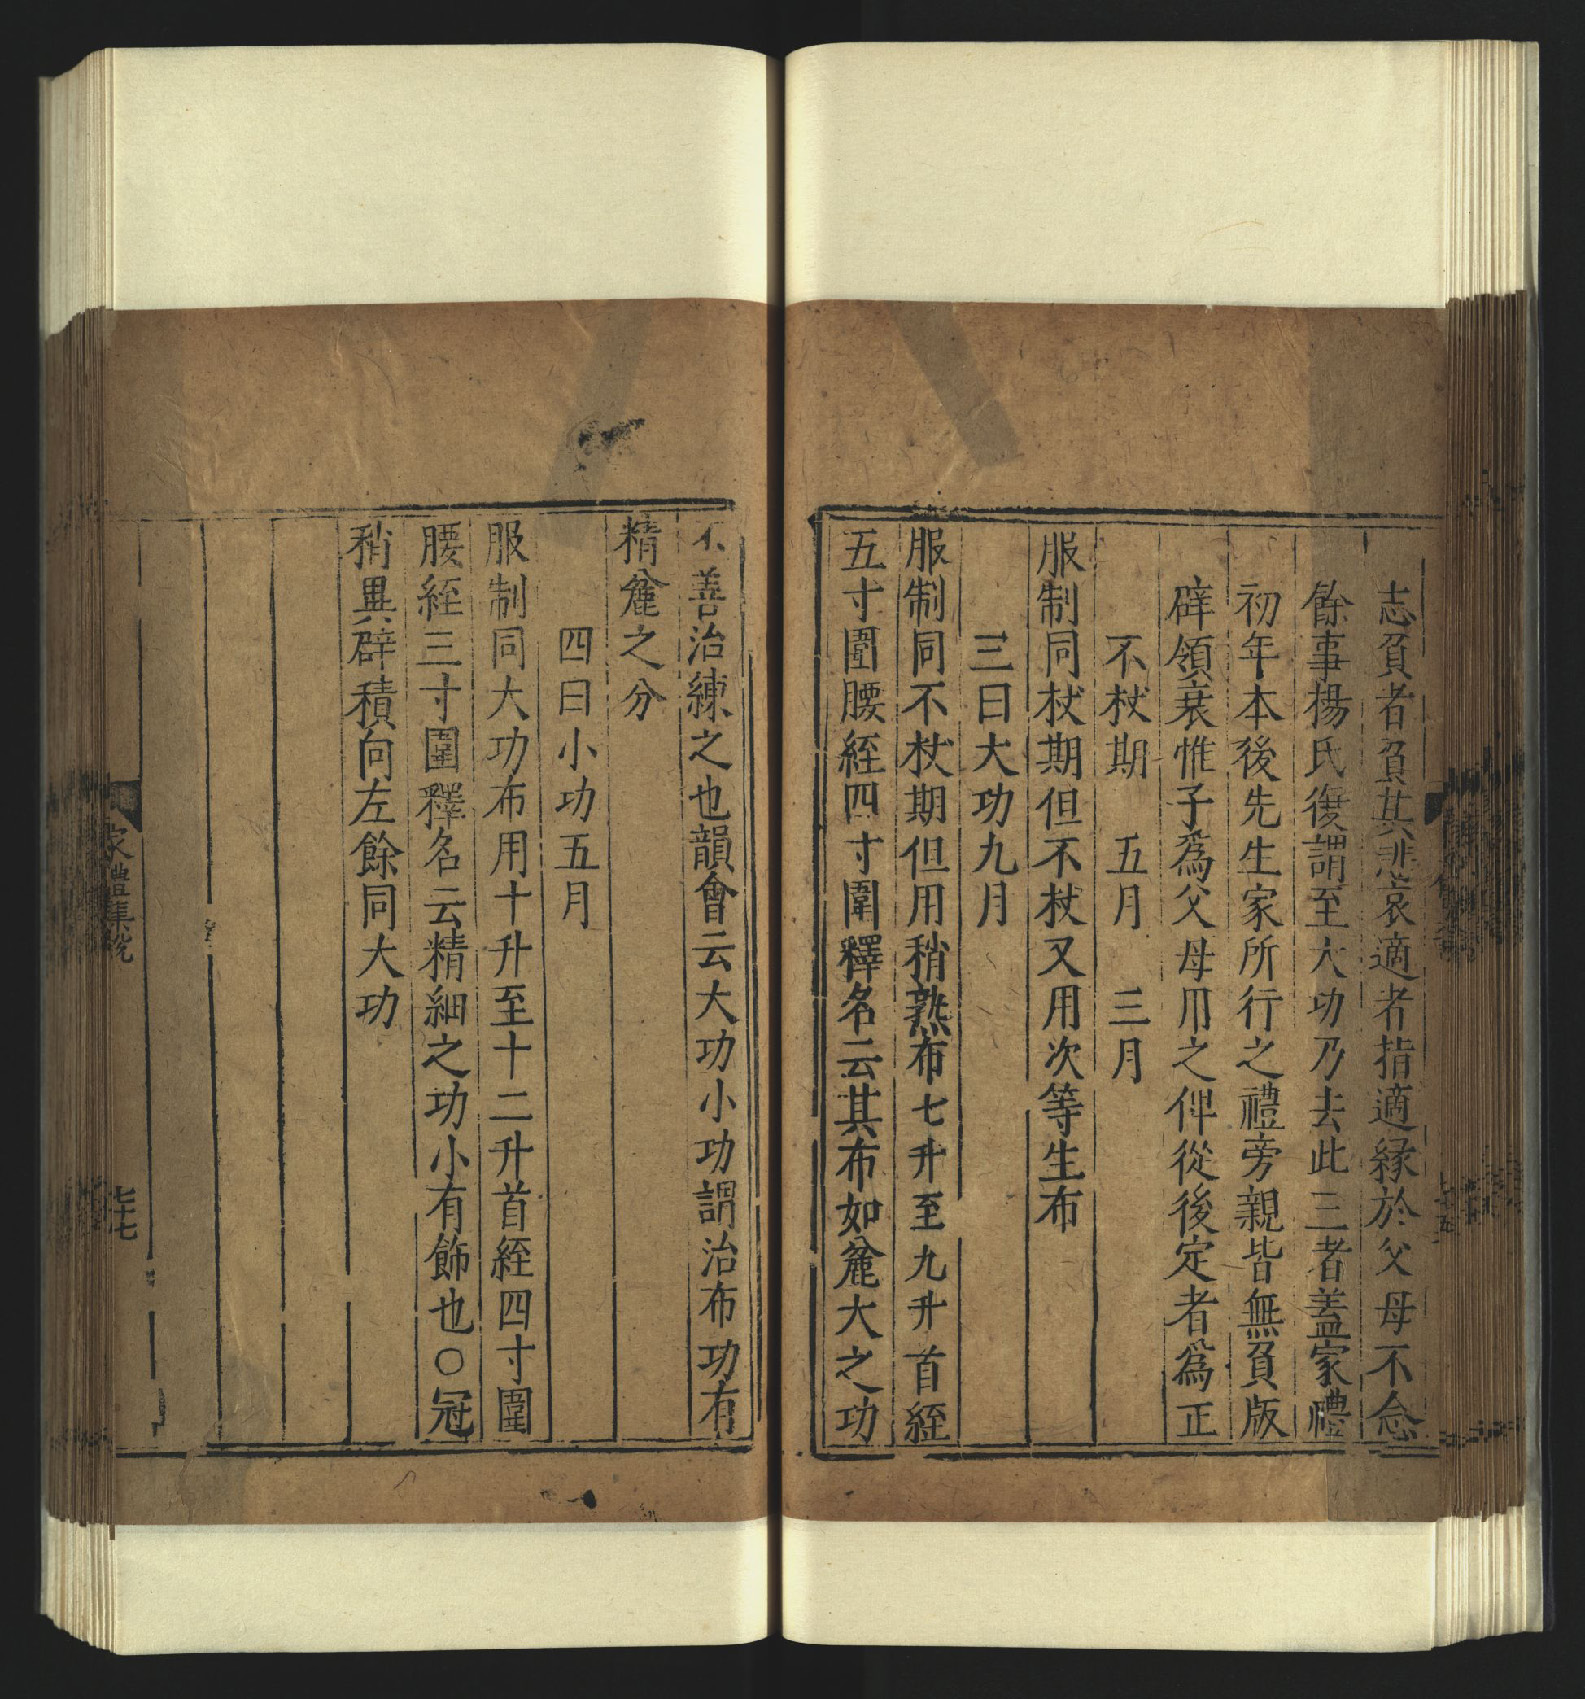 志負者負其悲哀適者指適縁於父母不念
餘事楊氏復謂至大功乃去此三者蓋家禮
初年本後先生家所行之禮旁親皆無負版
辟領衰惟子為父母用之但從後定者為正
不杖期 五月 三月
服制同杖期但不杖又用次等生布
三曰大功九月
服制同不杖期但用稍熟布七升至九升首絰
五寸圍腰絰四寸圍釋名云其布如麄大之功
不善治練之也韻會云大功小功謂治布功有
精麄之分
四曰小功五月
服制同大功布用十升至十二升首絰四寸圍
腰絰三寸圍釋名云精細之功小有飾也○冠
稍異辟積向左餘同大功
家禮集說
七十七